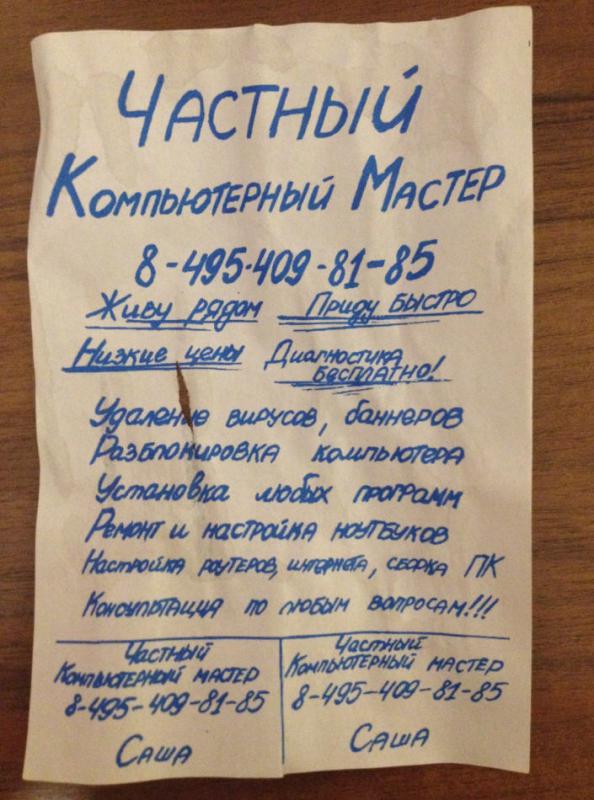 Частный
Компьютерный Мастер
8-495-409-81-85
Живу рядом Приду быстро
Низкие цены Диагностика
бесплатно!
Удаление вирусов, баннеров
Разблокировка компьютера
Установка любых программ
Ремонт и настройка ноутбуков
Настройка роутеров, интернета, сборка ПК
Консультация по любым вопросам!!!
Частный
Компьютерный мастер
8-495-409-81-85
Саша
Частный
Компьютерный мастер
8-495-409-81-85
Саша